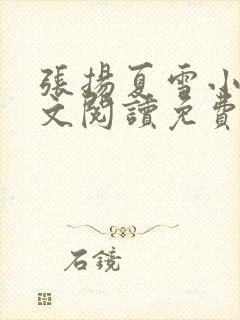 張揚夏雪小
文閱讀免費
石鏡